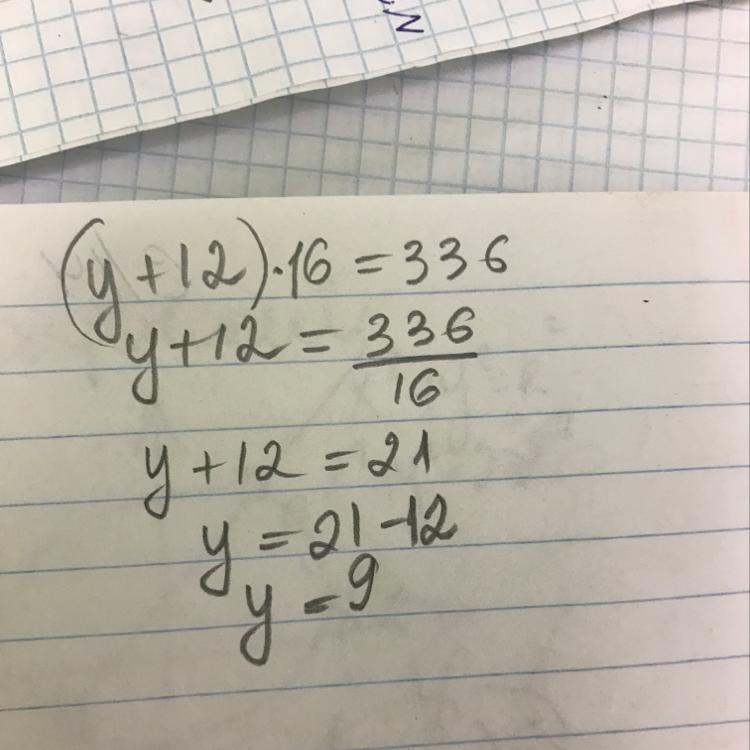 (y+12)·16=336
y+12=336/16
y+12=21
y=21-12
y=9